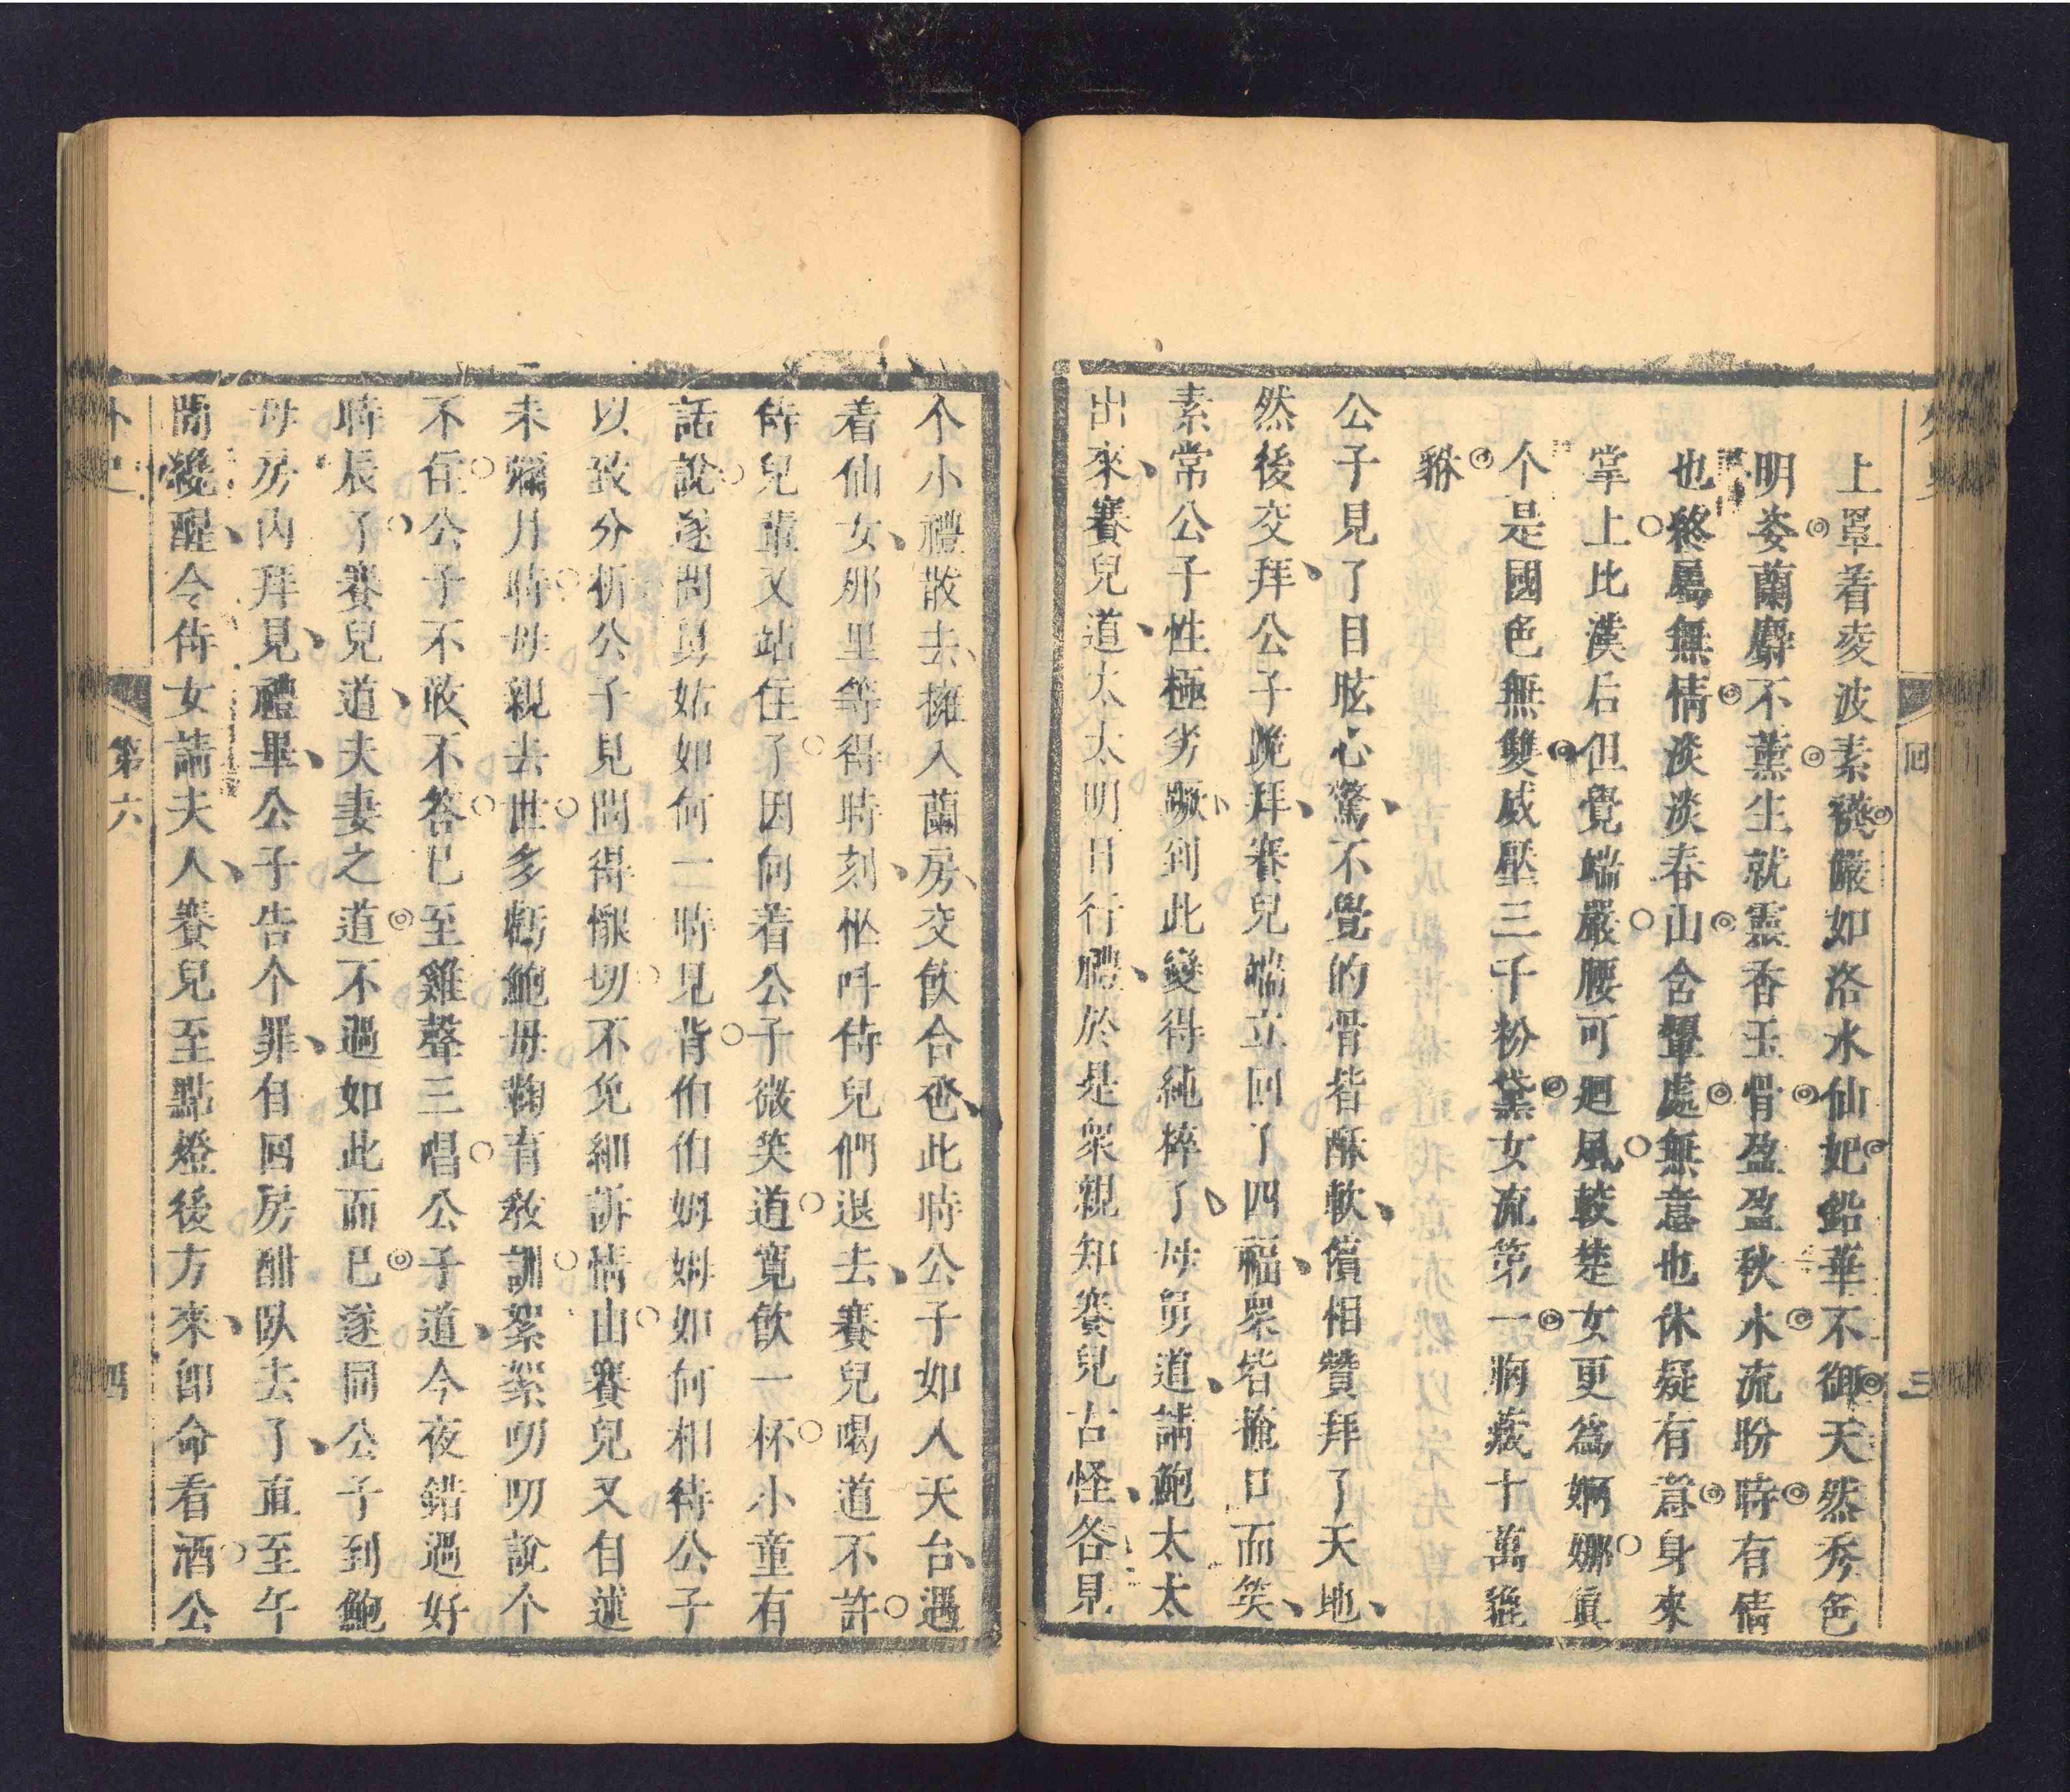 上罩着凌波素襪儼如洛水仙妃鉛華不御天然秀色
明姿蘭麝不薰生就靈香玉骨盈盈秋水流盼時有情
也終屬無情淡淡春山含顰處無意也休疑有意身來
掌上比漢后但覺端嚴腰可廻風較楚女更爲婀娜眞
个是國色無雙威壓三千粉黛女流第一胸藏十萬貔
貅
公子見了目眩心驚不覺的骨皆酥軟儐相贊拜了天地
然後交拜公子跪拜賽兒端立回了四福衆皆掩口而笑
素常公子性極劣撅到此變得純粹了母舅道請鮑太太
出來賽兒道太太明日行禮於是衆親知賽兒古怪各見
个小禮散去擁入蘭房交飲合卺此時公子如入天台遇
着仙女那里等得時刻忙呌侍兒們退去賽兒喝道不許
侍兒輩又站住了因何着公子微笑道寬飲一杯小童有
話說遂問具姑如何一時見背伯伯姆姆如何相待公子
以致分析公子見問得懇切不免細訴情由賽兒又自述
未彌月時母親去世多虧鮑母鞠育敎訓絮絮叨叨說个
不住公子不敢不答已至雞聲三唱公子道今夜錯過好
時辰了賽兒道夫妻之道不過如此而已遂同公子到鮑
母房內拜見禮畢公子告个罪自回房酣臥去了直至午
間纔醒令侍女請夫人賽兒至點燈後方來卽命看酒公
外史
回
三
第六
四